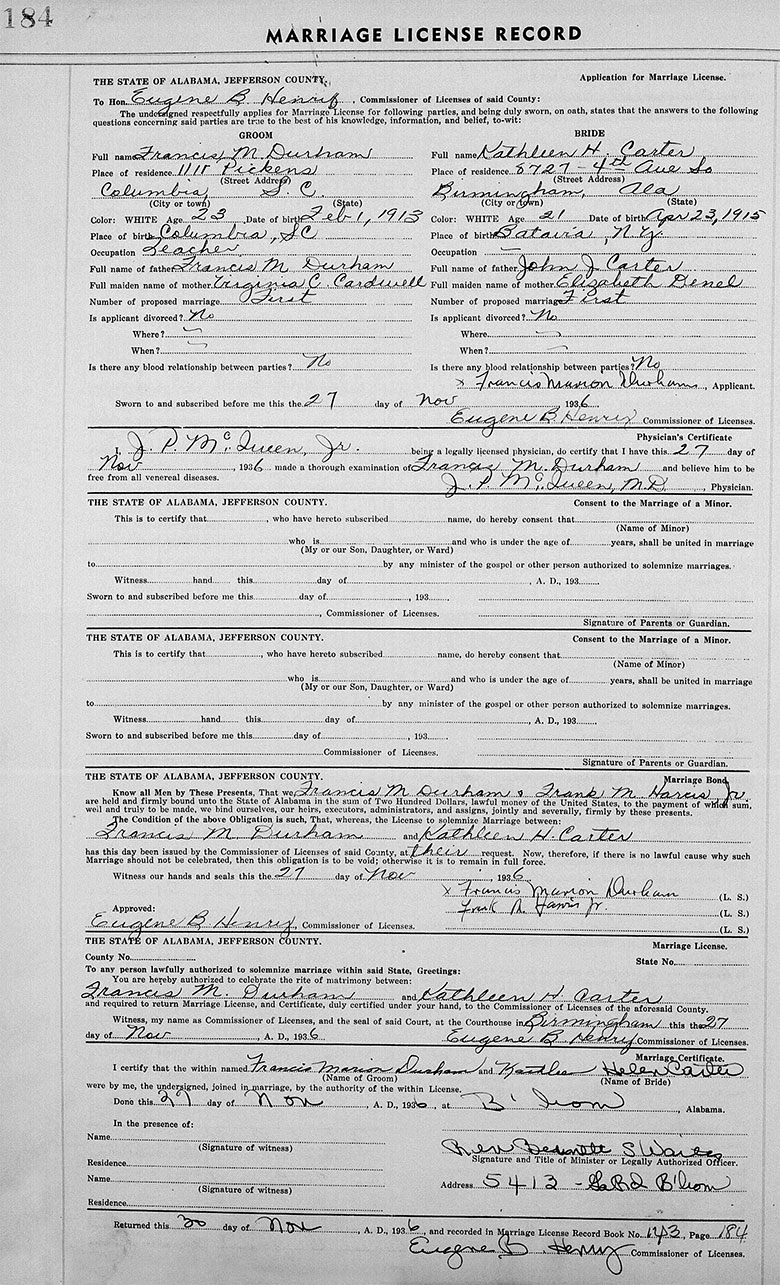 184
MARRIAGE LICENSE RECORD
THE STATE OF ALABAMA, JEFFERSON COUNTY. Application for Marriage License.
To Hon. Eugene B. Henry, Commissioner of Licenses of said County:
The undersigned respectfully applies for Marriage License for following parties, and being duly sworn, on oath, states that the answers to the following
questions concerning said parties are true to the best of his knowledge, information, and belief, to-wit:
GROOM BRIDE
Full name Francis M. Durham Full name Kathleen H. Carter
Place of residence 1111 Pickens Place of residence 8727 - 4th Ave So
(Street Address) (Street Address)
Columbia, S. C Birmingham, Ala
(City or town) (State) (City or town) (State)
Color: WHITE Age 23, Date of birth Feb 1, 1913 Color: WHITE Age 21 Date of birth Apr 23, 1915
Place of birth Columbia, SC Place of birth Batavia, N.Y.
Occupation Teacher Occupation —
Full name of father Francis M Durham Full name of father John J. Carter
Full maiden name of mother Virginia C. Cardwell Full maiden name of mother Elizabeth Benel
Number of proposed marriage First Number of proposed marriage First
Is applicant divorced? No Is applicant divorced? No
Where? — Where —
When? — When? —
Is there any blood relationship between parties? No Is there any blood relationship between parties? No
x Francis Marion Durham, Applicant.
Sworn to and subscribed before me this the 27 day of Nov 1936
Eugene B. Henry Commissioner of Licenses.
Physician's Certificate
I, J. P. McQueen, Jr. being a legally licensed physician, do certify that I have this 27 day of
Nov, 1936 made a thorough examination of Francis M. Durham and believe him to be
free from all venereal diseases. J. P. McQueen, M.D., Physician.
THE STATE OF ALABAMA, JEFFERSON COUNTY. Consent to the Marriage of a Minor.
This is to certify that, who have hereto subscribed name, do hereby consent that
(Name of Minor)
who is and who is under the age of years, shall be united in marriage
(My or our Son, Daughter, or Ward)
to by any minister of the gospel or other person authorized to solemnize marriages.
Witness hand this day of, A. D., 193
Sworn to and subscribed before me this day of, 193
, Commissioner of Licenses.
Signature of Parents or Guardian.
THE STATE OF ALABAMA, JEFFERSON COUNTY. Consent to the Marriage of a Minor.
This is to certify that, who have hereto subscribed name, do hereby consent that
(Name of Minor)
who is and who is under the age of years, shall be united in marriage
(My or our Son, Daughter, or Ward)
to by any minister of the gospel or other person authorized to solemnize marriages.
Witness hand this day of, A. D., 193
Sworn to and subscribed before me this day of, 193
Commissioner of Licenses.
Signature of Parents or Guardian.
THE STATE OF ALABAMA, JEFFERSON COUNTY. Marriage Bond
Know all Men by These Presents, That we Francis M Durham & Frank M. Harris, Jr.
are held and firmly bound unto the State of Alabama in the sum of Two Hundred Dollars, lawful money of the United States, to the payment of which sum,
well and truly to be made, we bind ourselves, our heirs, executors, administrators, and assigns, jointly and severally, firmly by these presents.
The Condition of the above Obligation is such, That, whereas, the License to solemnize Marriage between:
Francis M. Durham and Kathleen H. Carter
has this day been issued by the Commissioner of Licenses of said County, at their request. Now, therefore, if there is no lawful cause why such
Marriage should not be celebrated, then this obligation is to be void; otherwise it is to remain in full force.
Witness our hands and seals this the 27 day of Nov, 1936
x Francis Marion Durham (L. S.)
Approved: Frank Jr. (L. S.)
Eugene B Henry, Commissioner of Licenses. (L. S.)
THE STATE OF ALABAMA, JEFFERSON COUNTY. Marriage License.
County No. State No.
To any person lawfully authorized to solemnize marriage within said State, Greetings:
You are hereby authorized to celebrate the rite of matrimony between:
Francis M. Durham and Kathleen H Carter
and required to return Marriage License, and Certificate, duly certified under your hand, to the Commissioner of Licenses of the aforesaid County.
Witness, my name as Commissioner of Licenses, and the seal of said Court, at the Courthouse in Birmingham this the 27
day of Nov, A. D., 1936 Eugene B Henry Commissioner of Licenses.
Marriage Certificate.
I certify that the within named Francis Marion Durham and Kathleen Helen Carter
(Name of Groom) (Name of Bride)
were by me, the undersigned, joined in marriage, by the authority of the within License.
Done this 27 day of Nov, A. D., 1936, at B'ham, Alabama.
In the presence of:
Name
(Signature of witness) Rev Bennett S
Residence Signature and Title of Minister or Legally Authorized Officer.
Name Address 5413 - B'ham
(Signature of witness)
Residence
Returned this 30 day of Nov, A. D., 1936, and recorded in Marriage License Record Book No. 1243, Page 184
Eugene B. Henry Commissioner of Licenses.